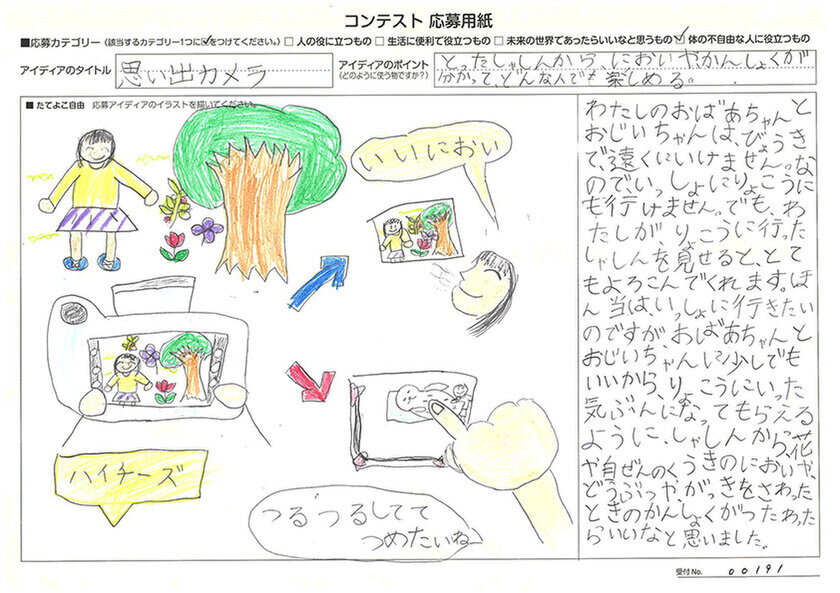 コンテスト 応募用紙
■応募カテゴリー(該当するカテゴリー1つに✓をつけてください。) □ 人の役に立つもの □ 生活に便利で役立つもの □ 未来の世界であったらいいなと思うもの ☑ 体の不自由な人に役立つもの
アイディアのタイトル
思い出カメラ
アイディアのポイント
(どのように使う物ですか?)
とったしゃしんから、においやかんしょくが
分かって、どんな人でも楽しめる。
■ たてよこ自由 応募アイディアのイラストを描いてください。
いいにおい
ハイチーズ
つるつるしてて
つめたいね
わたしのおばあちゃんと
おじいちゃんは、びょうき
で遠くにいけません。な
のでいっしょにりょこうに
も行けません。でも、わ
たしがりょこうに行った
しゃしんを見せると、とて
もよろこんでくれます。ほ
ん当は、いっしょに行きたい
のですが、おばあちゃんと
おじいちゃんに少しでも
いいから、りょこうにいった
気ぶんになってもらえる
ように、しゃしんから、花
や自ぜんのくうきのにおいや、
どうぶつや、がっきをさわった
ときのかんしょくがつたわった
らいいなと思いました。
受付No. 00191